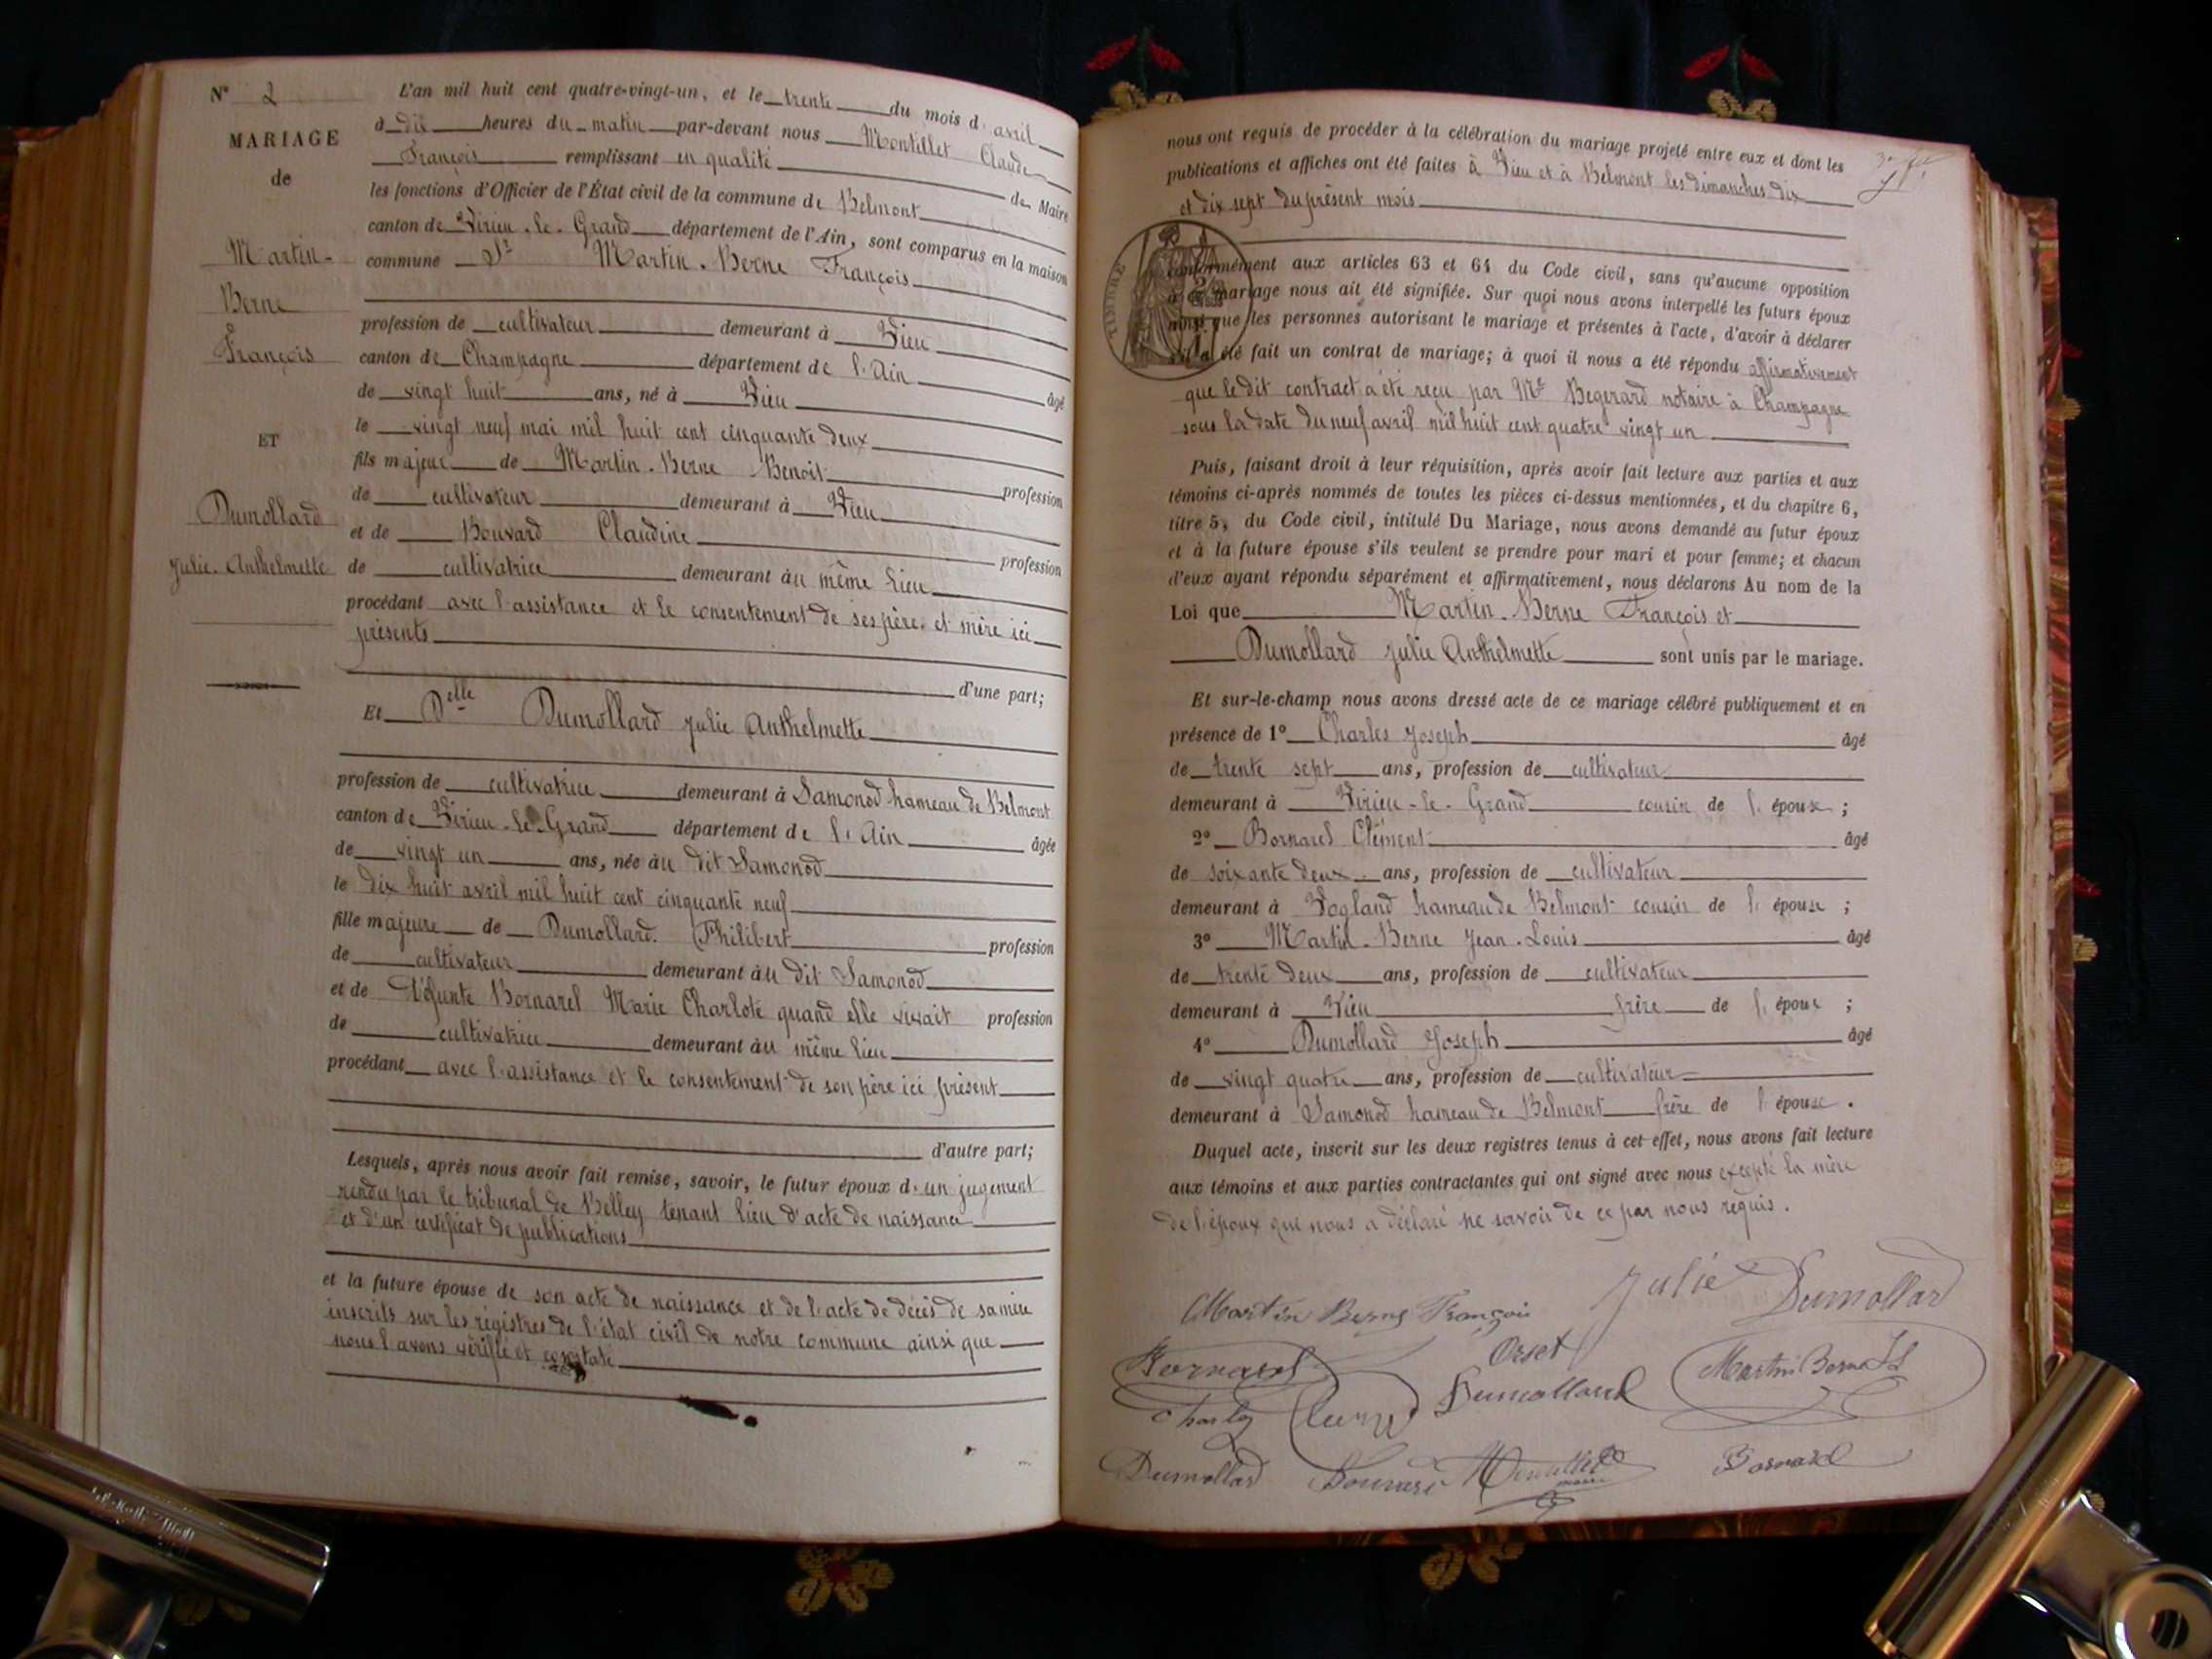 N° 2
MARIAGE
de
Martin-
Berne
François
ET
Dumollard
Julie Anthelmette
L'an mil huit cent quatre-vingt-un, et le trente du mois d'avril
à dix heures du matin par-devant nous Montillet Claude
François remplissant en qualité de Maire
les fonctions d'Officier de l'État civil de la commune de Belmont
canton de Virieu-le-Grand département de l'Ain, sont comparus en la maison
commune Sr Martin-Berne François
profession de cultivateur demeurant à Vieu
canton de Champagne département de l'Ain
de vingt huit ans, né à Vieu âgé
le vingt neuf mai mil huit cent cinquante deux
fils majeur de Martin-Berne Benoit profession
de cultivateur demeurant à Vieu
et de Bouvard Claudine profession
de cultivatrice demeurant au même lieu
procédant avec l'assistance et le consentement de ses père et mère ici
présents
d'une part;
Et Delle Dumollard Julie Anthelmette
profession de cultivatrice demeurant à Samonod hameau de Belmont
canton de Virieu-le-Grand département de l'Ain âgée
de vingt un ans, née au dit Samonod
le dix huit avril mil huit cent cinquante neuf
fille majeure de Dumollard Philibert profession
de cultivateur demeurant au dit Samonod
et de défunte Bornarel Marie Charlote quand elle vivait profession
de cultivatrice demeurant au même lieu
procédant avec l'assistance et le consentement de son père ici présent
d'autre part;
Lesquels, après nous avoir fait remise, savoir, le futur époux d'un jugement
rendu par le tribunal de Belley tenant lieu d'acte de naissance
et d'un certificat de publications
et la future épouse de son acte de naissance et de l'acte de décès de sa mère
inscrits sur les régistres de l'état civil de notre commune ainsi que
nous l'avons vérifié et constaté
nous ont requis de procéder à la célébration du mariage projeté entre eux et dont les
publications et affiches ont été faites à Vieu et à Belmont les dimanches dix
et dix sept du présent mois
TIMBRE
conformément aux articles 63 et 64 du Code civil, sans qu'aucune opposition
à ce mariage nous ait été signifiée. Sur quoi nous avons interpellé les futurs époux
ainsi que les personnes autorisant le mariage et présentes à l'acte, d'avoir à déclarer
s'il a été fait un contrat de mariage; à quoi il nous a été répondu affirmativement
que le dit contract a été reçu par Me Begerard notaire à Champagne
sous la date du neuf avril mil huit cent quatre vingt un
Puis, faisant droit à leur réquisition, après avoir fait lecture aux parties et aux
témoins ci-après nommés de toutes les pièces ci-dessus mentionnées, et du chapitre 6,
titre 5, du Code civil, intitulé Du Mariage, nous avons demandé au futur époux
et à la future épouse s'ils veulent se prendre pour mari et pour femme; et chacun
d'eux ayant répondu séparément et affirmativement, nous déclarons Au nom de la
Loi que Martin-Berne François et
Dumollard Julie Anthelmette sont unis par le mariage.
Et sur-le-champ nous avons dressé acte de ce mariage célébré publiquement et en
présence de 1° Charles Joseph âgé
de trente sept ans, profession de cultivateur
demeurant à Virieu-le-Grand cousin de l'épouse ;
2° Bornarel Clément âgé
de soixante deux ans, profession de cultivateur
demeurant à Vogland hameau de Belmont cousin de l'épouse ;
3° Martin-Berne Jean-Louis âgé
de trente deux ans, profession de cultivateur
demeurant à Vieu frère de l'époux ;
4° Dumollard Joseph âgé
de vingt quatre ans, profession de cultivateur
demeurant à Samonod hameau de Belmont frère de l'épouse .
Duquel acte, inscrit sur les deux registres tenus à cet effet, nous avons fait lecture
aux témoins et aux parties contractantes qui ont signé avec nous excepté la mère
de l'époux que nous a déclaré ne savoir de ce par nous requis.
Martin Berne François
Julie Dumollard
Bornarel
Orset
Martin Berne JL
Charles
Dumollard
Dumollard
Bouvard
Montillet
maire
Bornarel